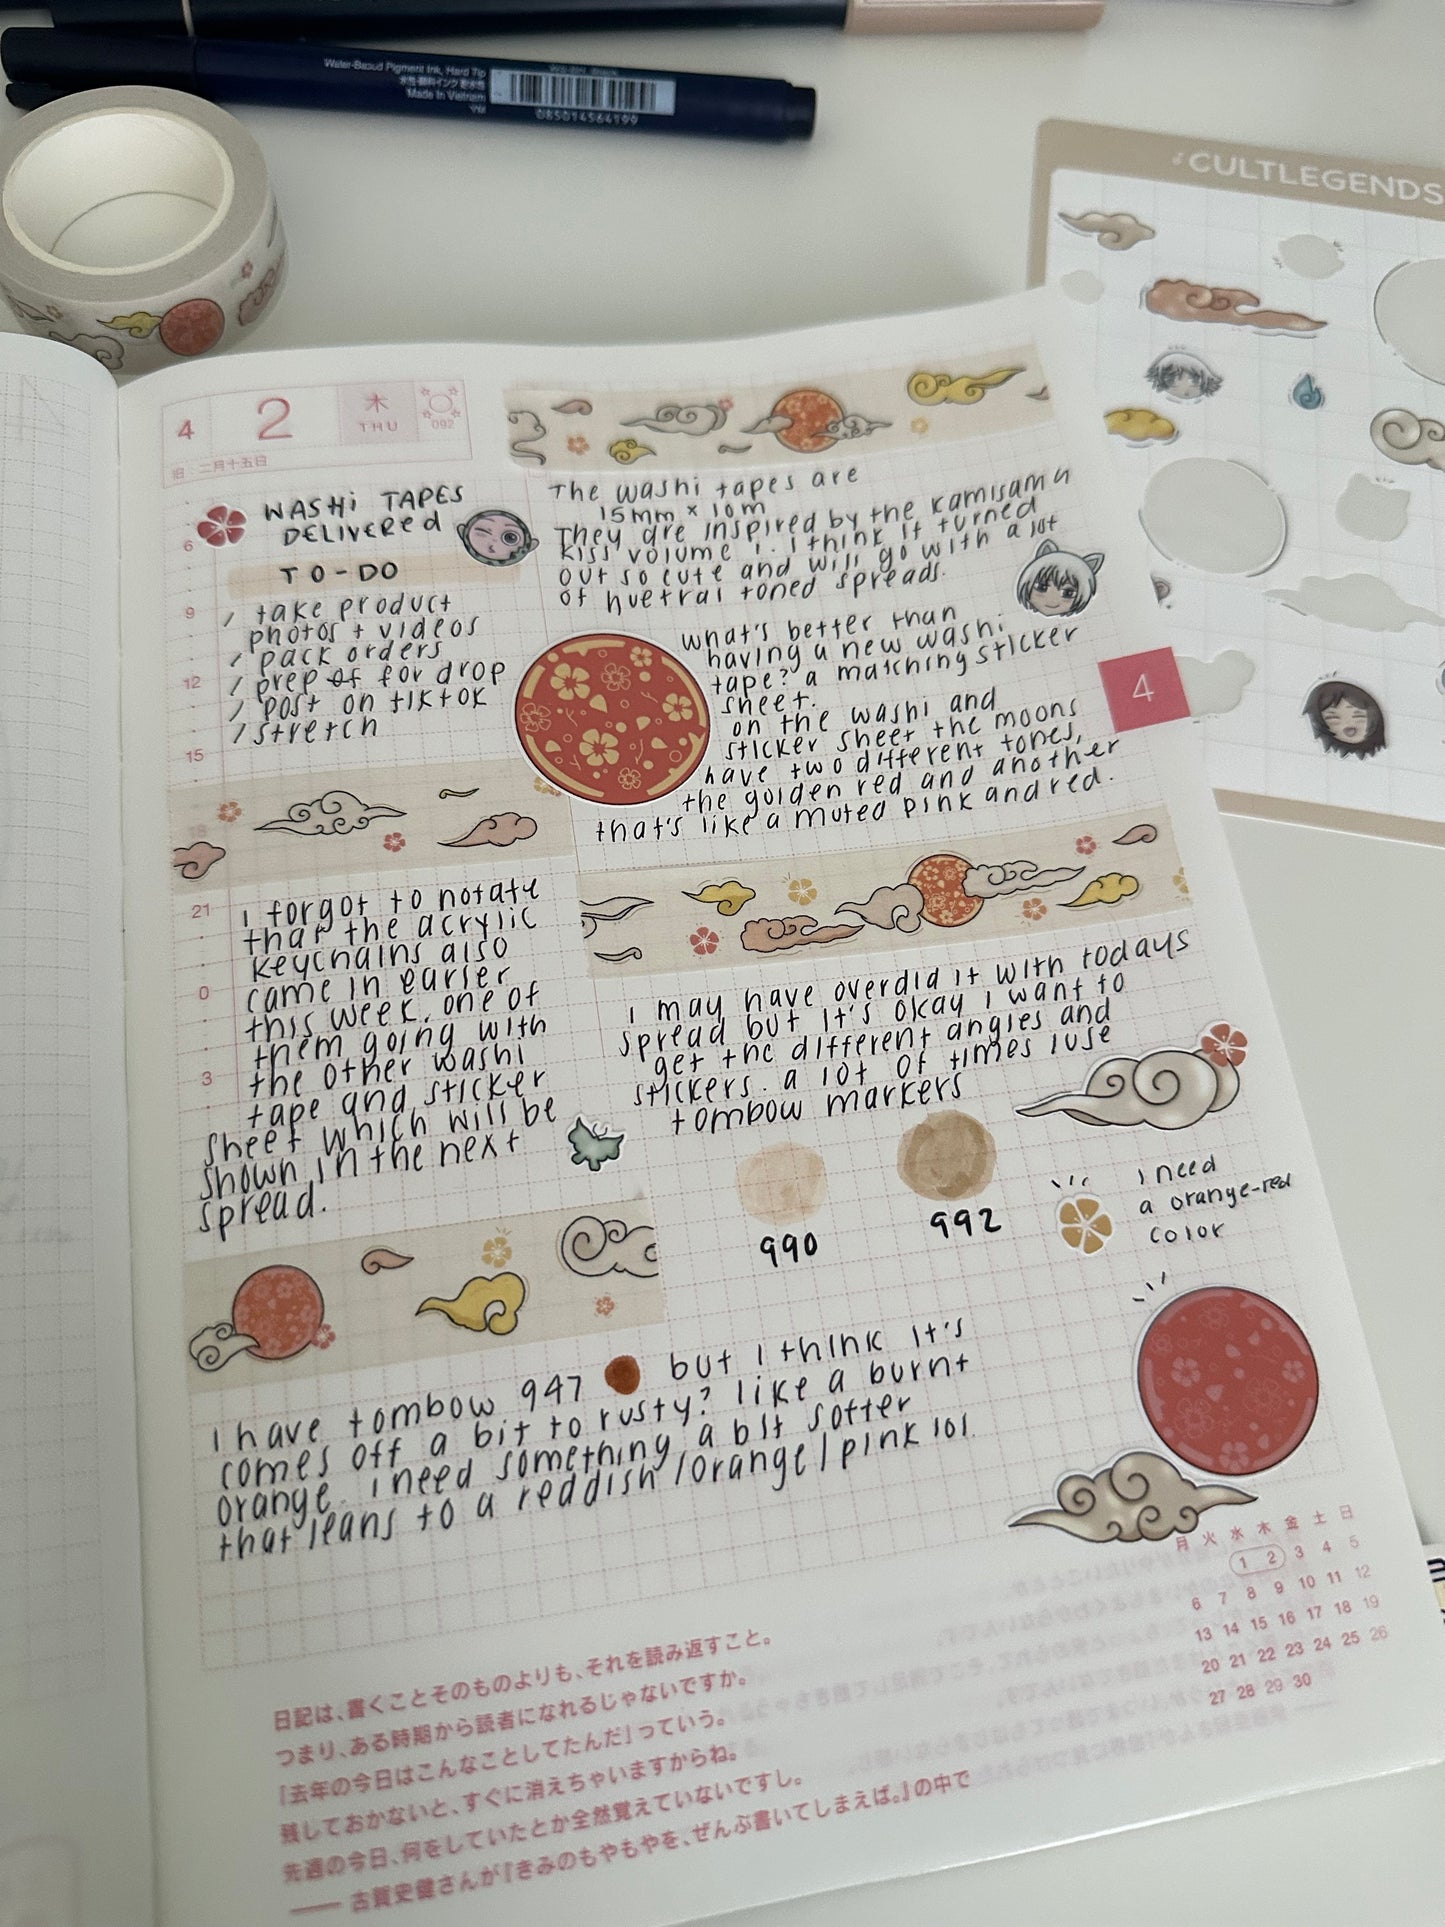 Water-Based Pigment Ink, Hard Tip
Made in Vietnam
085014564199
CULTLEGENDS
4 2 木 THU 092
旧 二月十五日
WASHI TAPES
DELIVERED
TO-DO
/ take product
photos + videos
/ pack orders
/ prep of for drop
/ post on tiktok
/ stretch
6
9
12
15
18
21
0
3
The washi tapes are
15mm × 10m
They are inspired by the Kamisama
Kiss volume 1. I think it turned
out so cute and will go with a lot
of nuetral toned spreads.
what's better than
having a new washi
tape? a matching sticker
sheet.
on the washi and
sticker sheet the moons
have two different tones,
the golden red and another
that's like a muted pink and red.
4
i forgot to notate
that the acrylic
keychains also
came in earlier
this week. one of
them going with
the other washi
tape and sticker
sheet which will be
shown in the next
spread.
i may have overdid it with todays
spread but it's okay i want to
get the different angles and
stickers. a lot of times i use
tombow markers
990
992
i need
a orange-red
color
i have tombow 947 but i think it's
comes off a bit to rusty? like a burnt
orange. i need something a bit softer
that leans to a reddish/orange/pink lol
月 火 水 木 金 土 日
1 2 3 4 5
6 7 8 9 10 11 12
13 14 15 16 17 18 19
20 21 22 23 24 25 26
27 28 29 30
日記は、書くことそのものよりも、それを読み返すこと。
つまり、ある時期から読者になれるじゃないですか。
『去年の今日はこんなことしてたんだ』っていう。
残しておかないと、すぐに消えちゃいますからね。
先週の今日、何をしていたとか全然覚えていないですし。
—— 古賀史健さんが『さみのもやもやを、ぜんぶ書いてしまえば。』の中で